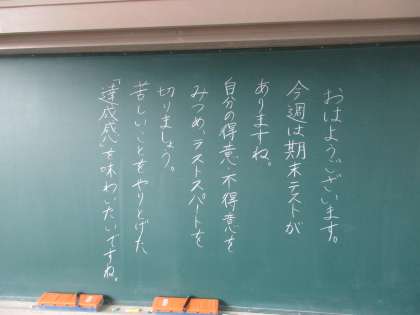 おはようございます。
今週は期末テストが
ありますね。
自分の得意、不得意を
みつめ、ラストスパートを
切りましょう。
苦しいことをやりとげた
「達成感」を味わいたいですね。